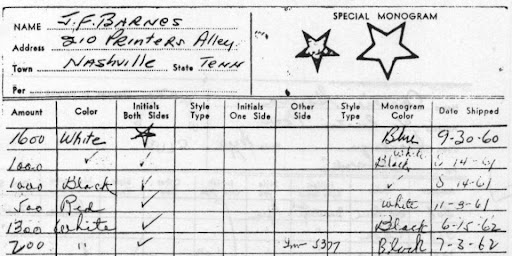 NAME J.F. BARNES
SPECIAL MONOGRAM
Address 210 Printers Alley
Town Nashville State Tenn
Per
Amount Color Initials Both Sides Style Type Initials One Side Other Side Style Type Monogram Color Date Shipped
1600 White Blue 9-30-60
1000 ✓ ✓ White Black 14-61
1000 Black ✓ ✓ 14-61
500 Red ✓ White 11-3-61
1300 White ✓ Black 6-15-62
200 " ✓ Black 7-3-62